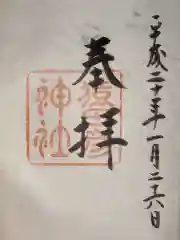 平成二十年一月二十六日
奉拝
神社